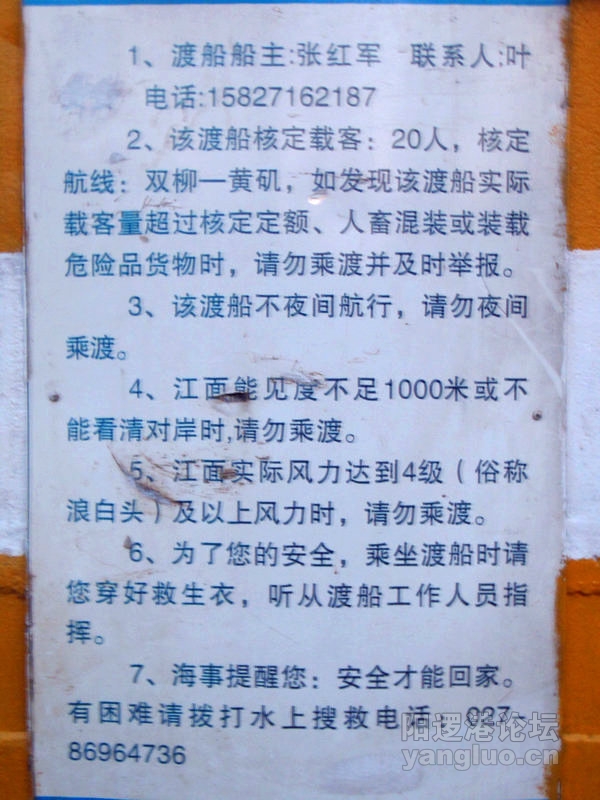 1、渡船船主:张红军 联系人:叶
电话:15827162187
2、该渡船核定载客：20人，核定
航线：双柳—黄矶，如发现该渡船实际
载客量超过核定定额、人畜混装或装载
危险品货物时，请勿乘渡并及时举报。
3、该渡船不夜间航行，请勿夜间
乘渡。
4、江面能见度不足1000米或不
能看清对岸时,请勿乘渡。
5、江面实际风力达到4级（俗称
浪白头）及以上风力时，请勿乘渡。
6、为了您的安全，乘坐渡船时请
您穿好救生衣，听从渡船工作人员指
挥。
7、海事提醒您：安全才能回家。
有困难请拨打水上搜救电话：027-
86964736
阳逻港论坛
yangluo.cn